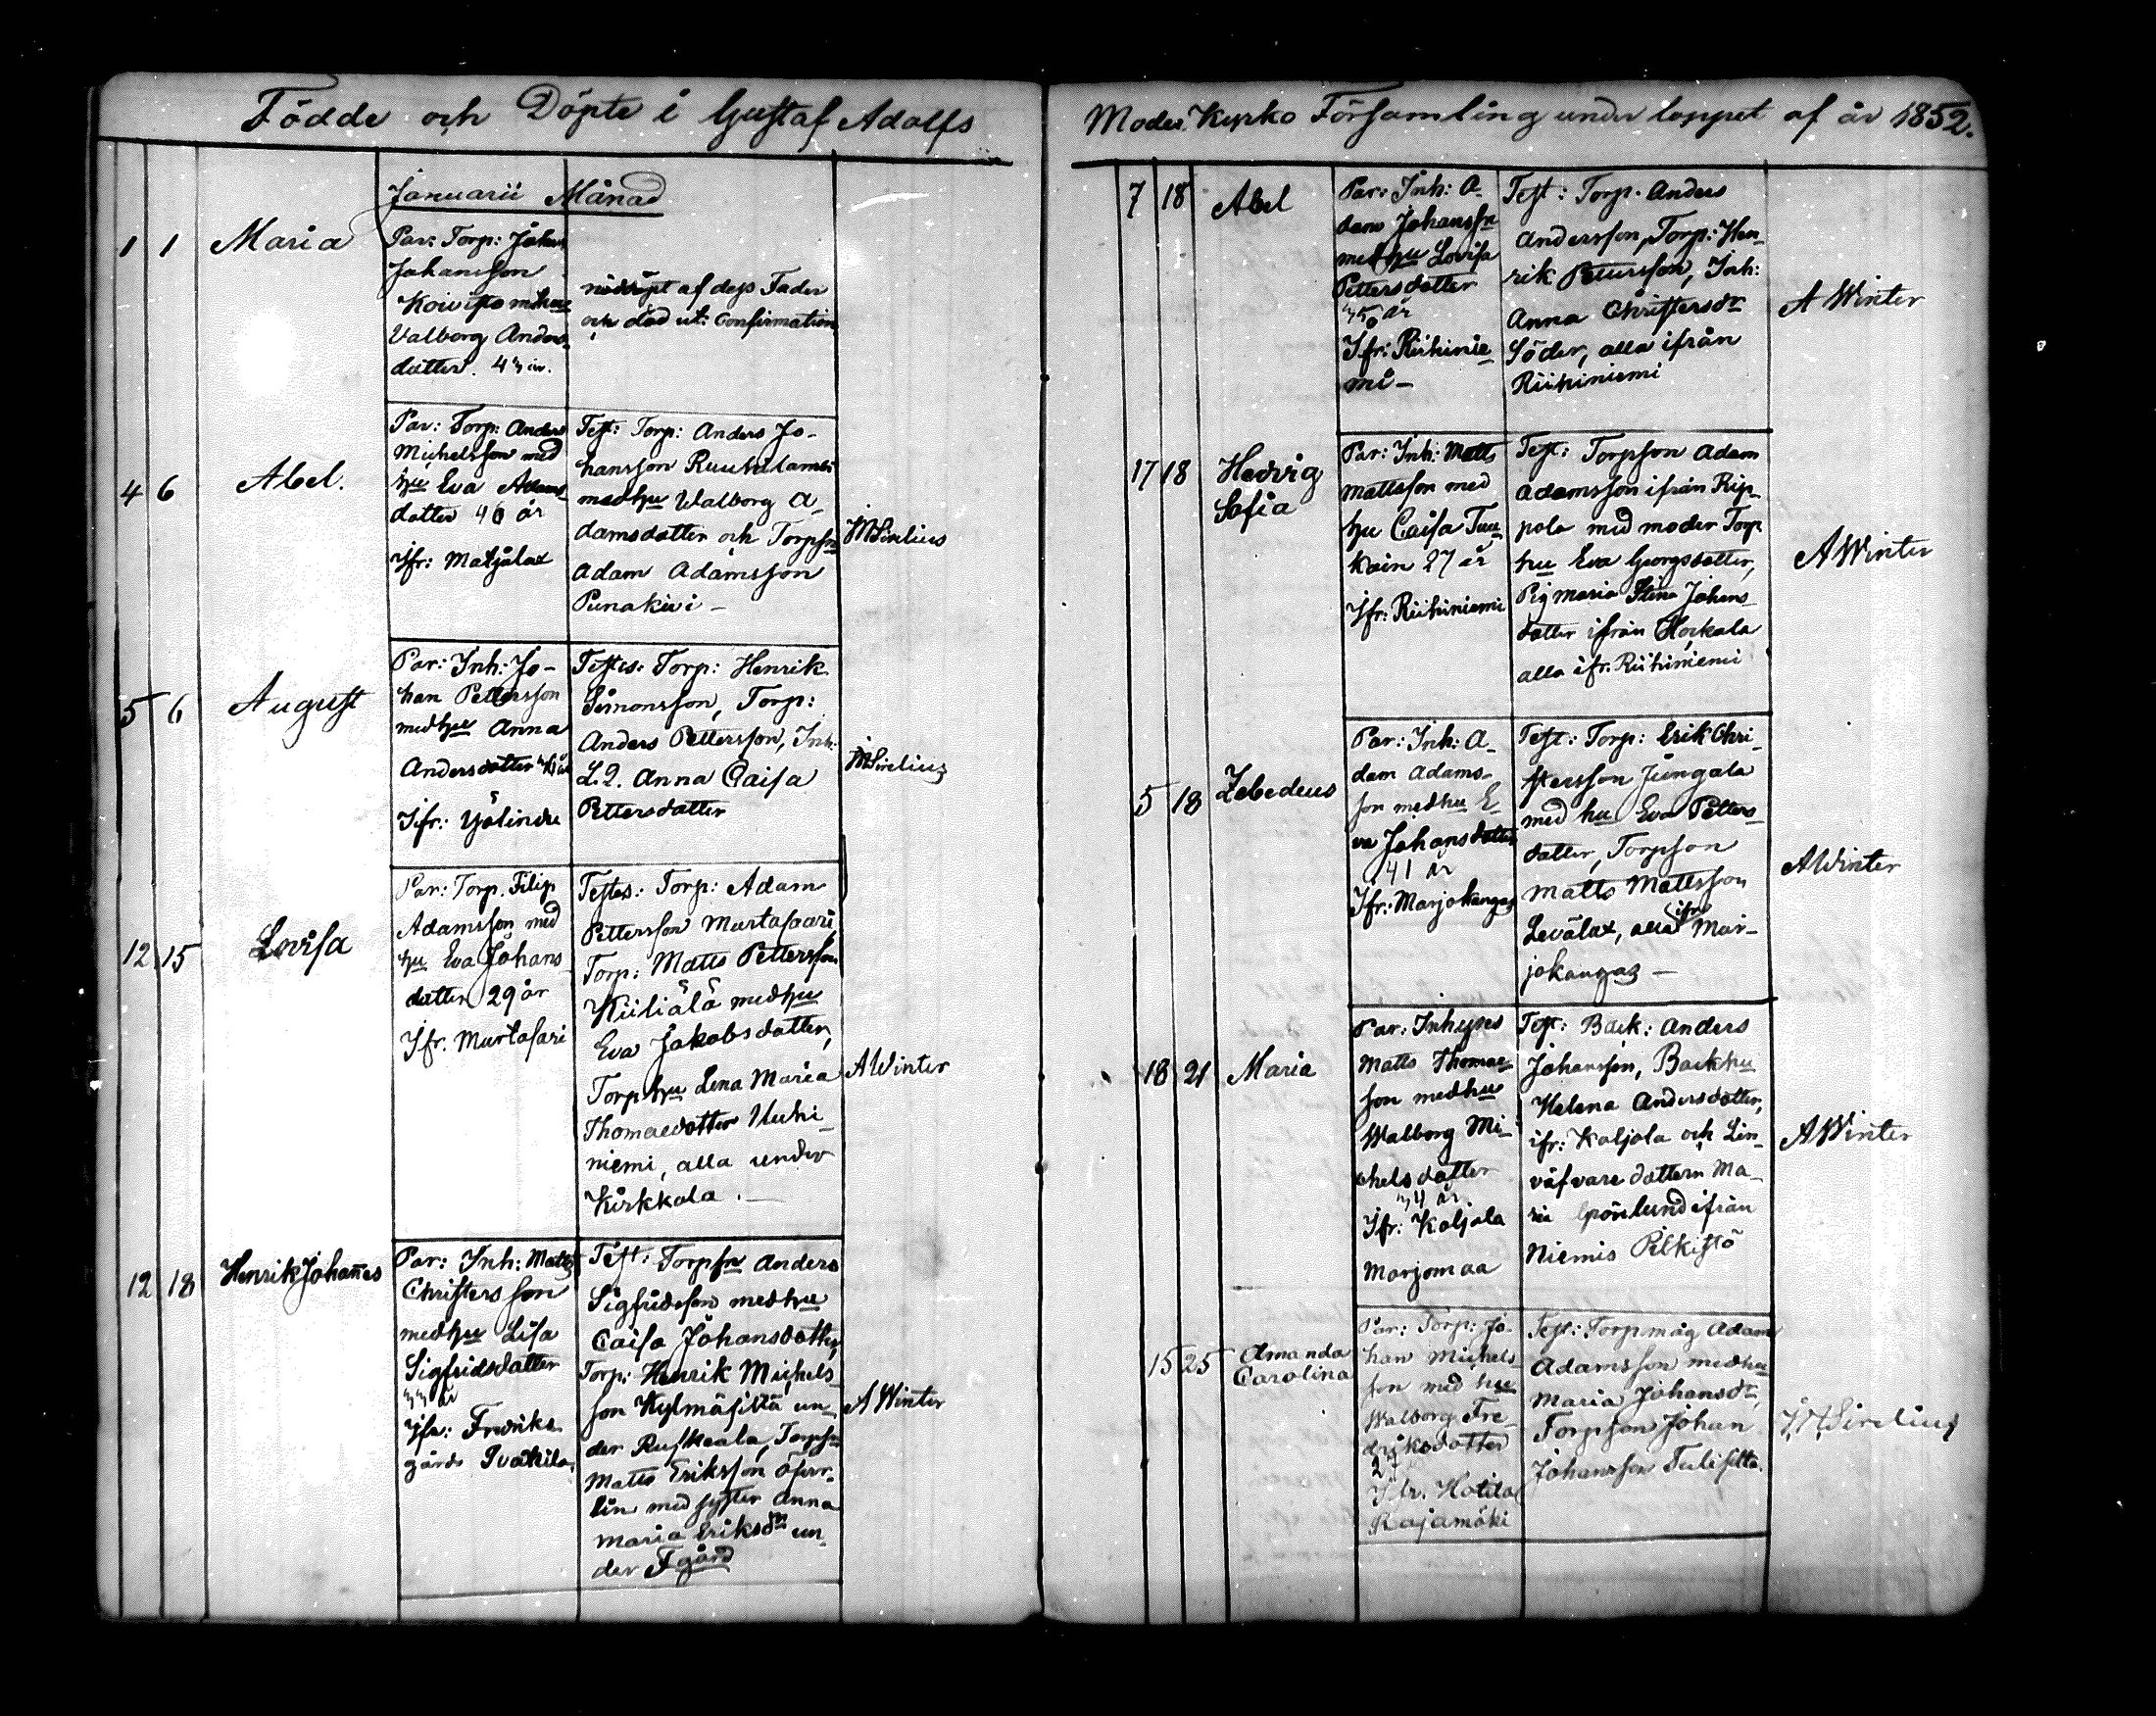 Födde och Döpte i Gustaf Adolfs
Januarii Månad
1 1 Maria
Par: Torp: Johan
Johansson
Koivisto m hu
Valborg Anders-
dotter. 43 år.
nöddöpt af dess Fader
och död ut: Confirmation
4 6 Abel.
Par: Torp: Anders
Michelsson med
hu Eva Adams-
dotter 40 år
Ifr: Matjälax
Test: Torp: Anders Jo-
hansson Ruuhilambi
med hu Walborg A-
damsdotter och Torpsn
Adam Adamsson
Punakivi –
MSirelius
5 6 August
Par: Inh: Jo-
han Pettersson
med hu Anna
Andersdotter
Ifr: Ylölindu
Testes: Torp: Henrik
Simonsson, Torp:
Anders Pettersson, Inh:
L. Q. Anna Caisa
Pettersdotter
MSirelius
12 15 Lovisa
Par: Torp. Filip
Adamsson med
hu Eva Johans
dotter 29 år
Ifr: Murtosari
Testes: Torp: Adam
Pettersson Murtosaari,
Torp: Matts Pettersson
Kiiliälä med hu
Eva Jakobsdotter,
Torp hu Lena Maria
Thomaedotter Uuhi-
niemi, alla under
Kirkkola. –
AWinter
12 18 Henrik Johañes
Par: Inh: Matts
Christersson
med hu Lisa
Sigfridsdotter
33 år
Ifr: Fredriks
gårds
Test: Torpsn Anders
Sigfridsson med hu
Caisa Johansdotter,
Torp: Henrik Michels-
son Kylmäsilta un-
der Ruskeala, Torpsn
Matts Eriksson
med syster Anna
Maria Eriksdr un-
der Fgård
A Winter
Moder Kyrko Församling under loppet af år 1852.
7 18 Abel
Par: Inh: A-
dam Johanssn
med hu Lovisa
Pettersdotter
35 år
Ifr: Riihinie-
mi –
Test: Torp. Anders
Andersson, Torp: Hen-
rik Pettersson, Inh:
Anna Christersdr
Söder, alla ifrån
Riihiniemi
A Winter
17 18 Hedvig
Sofia
Par: Inh: Matts
Mattsson med
hu Caisa Tuu-
kain 27 år
Ifr: Riihiniemi
Test: Torpson Adam
Adamsson ifrån Rip-
pola med moder Torp
hu Eva Georgsdotter,
Pig Maria Stina Johans-
dotter ifrån Hockala
alla ifr: Riihiniemi
AWinter
5 18 Zebedeus
Par: Inh: A-
dam Adams-
son med hu E-
va Johansdotter
41 år
Ifr: Marjokangas
Test: Torp: Erik Chri-
stersson Jungala
med hu Eva Petters-
dotter, Torpson
Matts Mattsson
Levälax, alla ifrn Mar-
jokangas –
AWinter
18 21 Maria
Par: Inhyses
Matts Thomae-
son med hu
Walborg Mi-
chelsdotter
34 år
Ifr: Koljola
Marjomaa
Test: Back: Anders
Johansson, Back hu
Helena Andersdotter,
ifr: Koljola och Lin-
väfvare dottern Ma-
ria Grönlund ifrån
Niemis Pilkistö
AWinter
15 25 Amanda
Carolina
Par: Torp: Jo-
han Michels-
son med hu
Walborg Fre-
driksdotter
27
Ifr. Hotila
Rajamäki
Test: Torpmåg Adam
Adamsson med hu
Maria Johansdr,
Torpson Johan
Johansson Tulisilta.
MSirelius